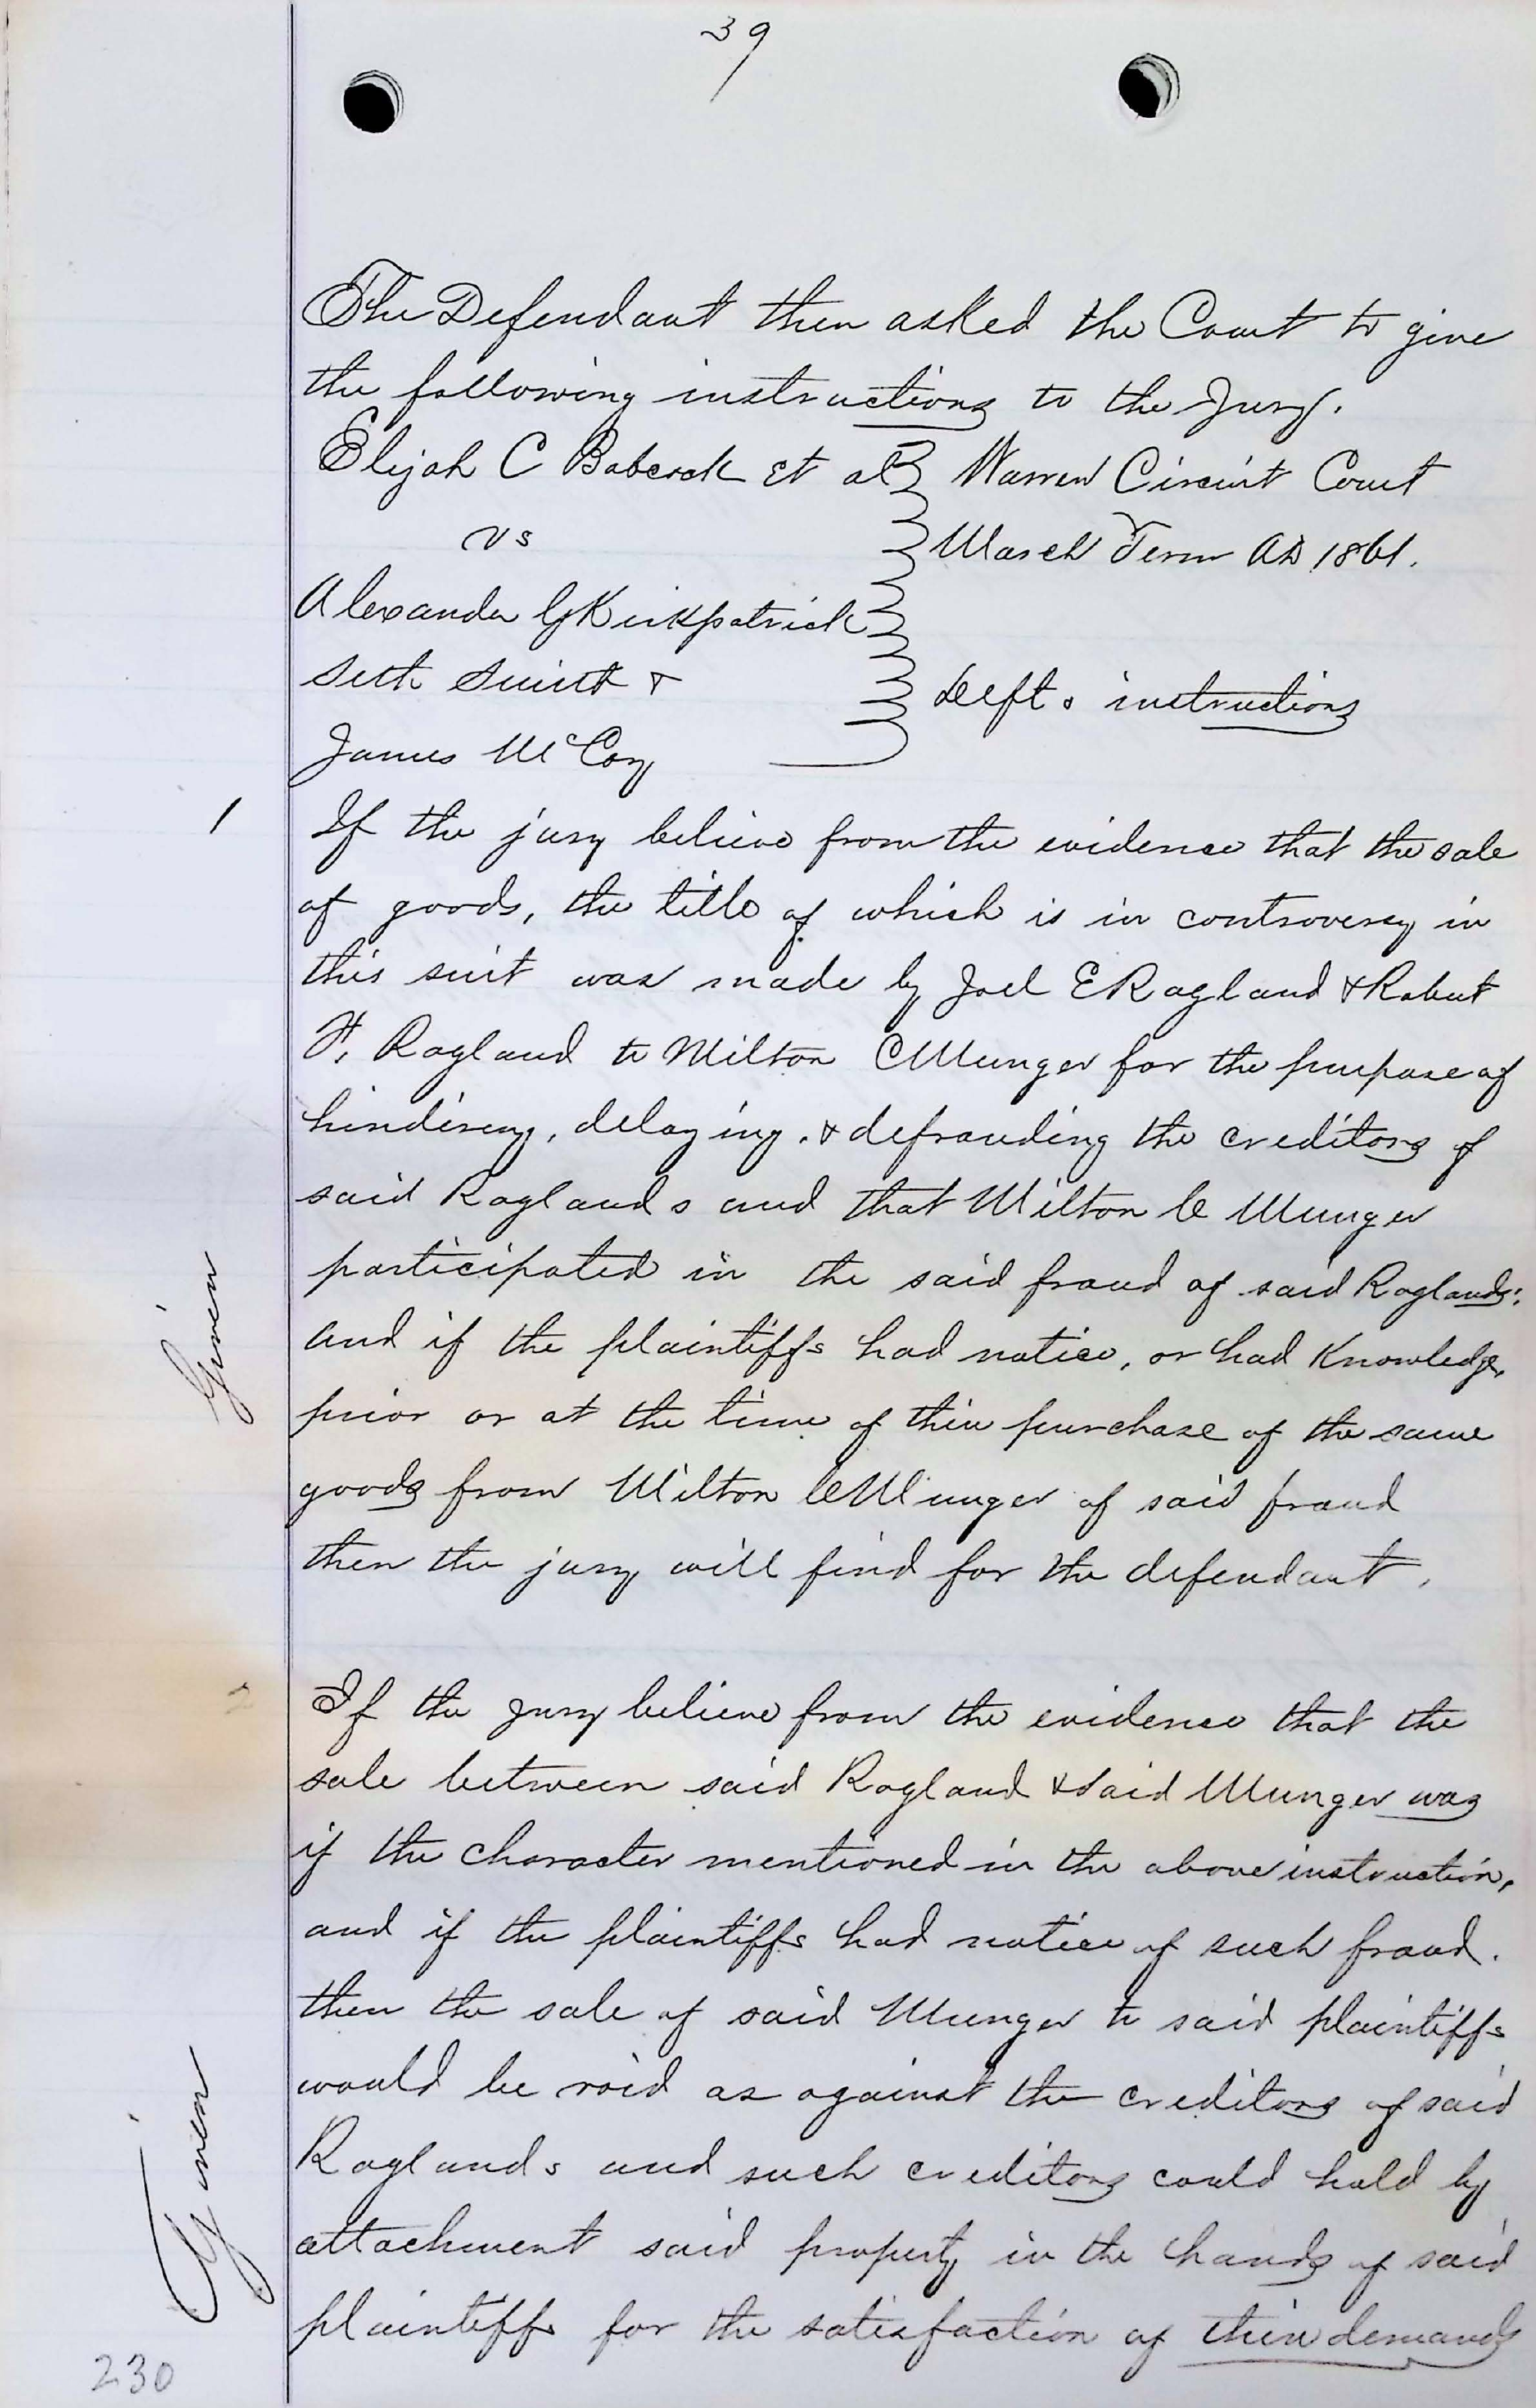 39
The Defendant then asked the Court to give
the following instructions to the Jury.
Elijah C Babcock et al Warren Circuit Court
vs March Term AD 1861.
Alexander G Kirkpatrick
Seth Smith &
Defts instructions
James McCoy
1 If the jury believe from the evidence that the sale
of goods, the title of which is in controversy in
this suit was made by Joel E Ragland & Robert
H, Ragland to Milton C Munger for the purpose of
hindering, delaying, & defrauding the creditors of
said Raglands and that Milton C Munger
participated in the said fraud of said Raglands;
and if the plaintiffs had notice, or had Knowledge,
prior or at the time of their purchase of the same
goods from Milton C Munger of said fraud
then the jury will find for the defendant.
Given
2 If the jury believe from the evidence that the
sale between said Ragland & said Munger was
if the character mentioned in the above instruction,
and if the plaintiffs had notice of such fraud.
then the sale of said Munger to said plaintiffs
would be void as against the creditors of said
Raglands and such creditors could hold by
attachment said property in the hands of said
plaintiffs for the satisfaction of their demands
Given
230